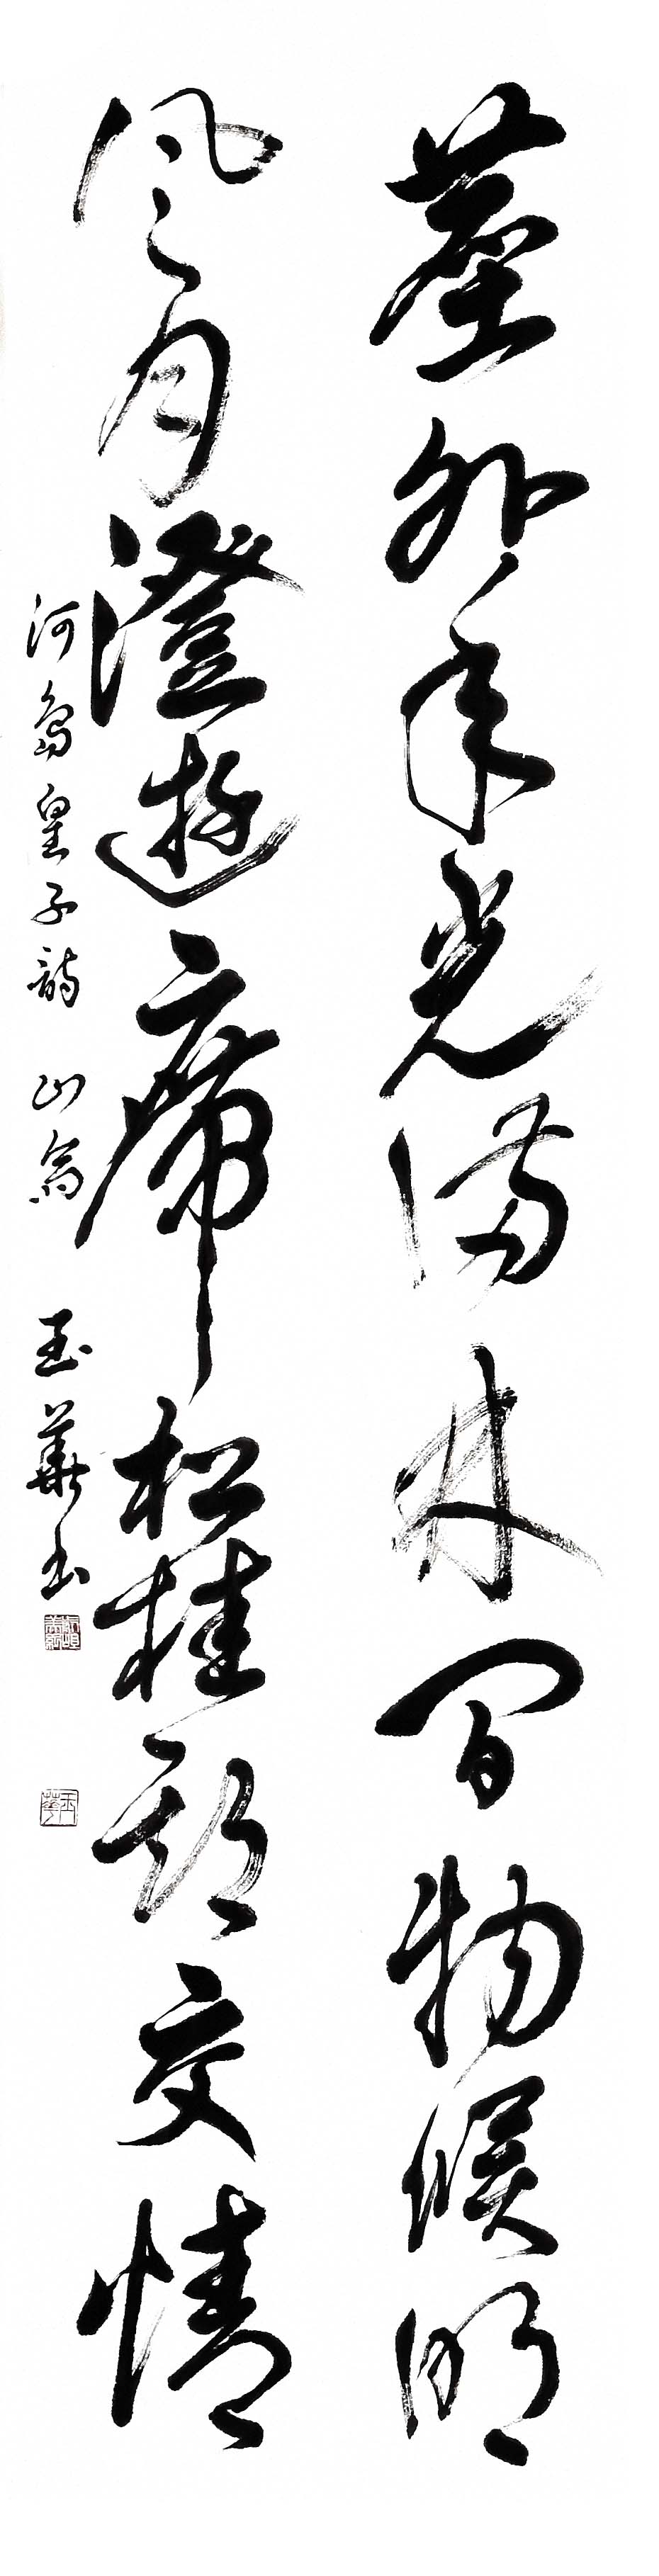 塵外年光満林間物候明
風月澄遊席松桂期交情
河島皇子詩 山斎 玉華書